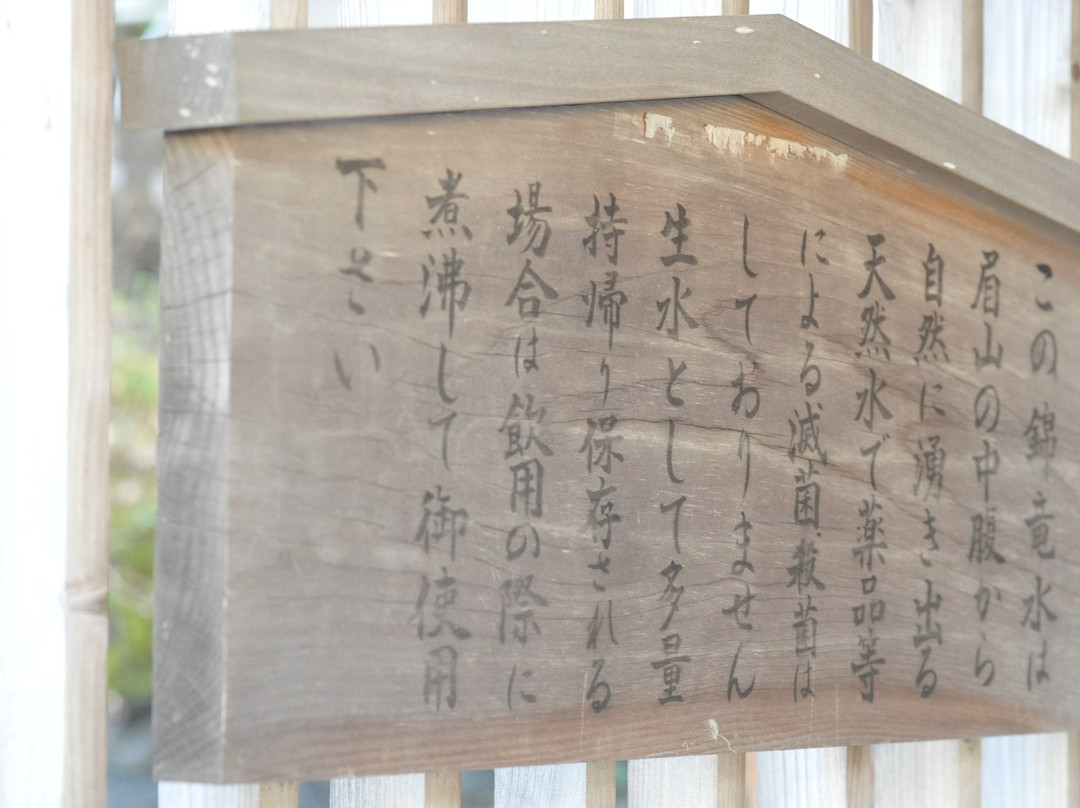 この錦竜水は
眉山の中腹から
自然に湧き出る
天然水で薬品等
による滅菌殺菌は
しておりません
生水として多量
持帰り保存される
場合は飲用の際に
煮沸して御使用
下さい